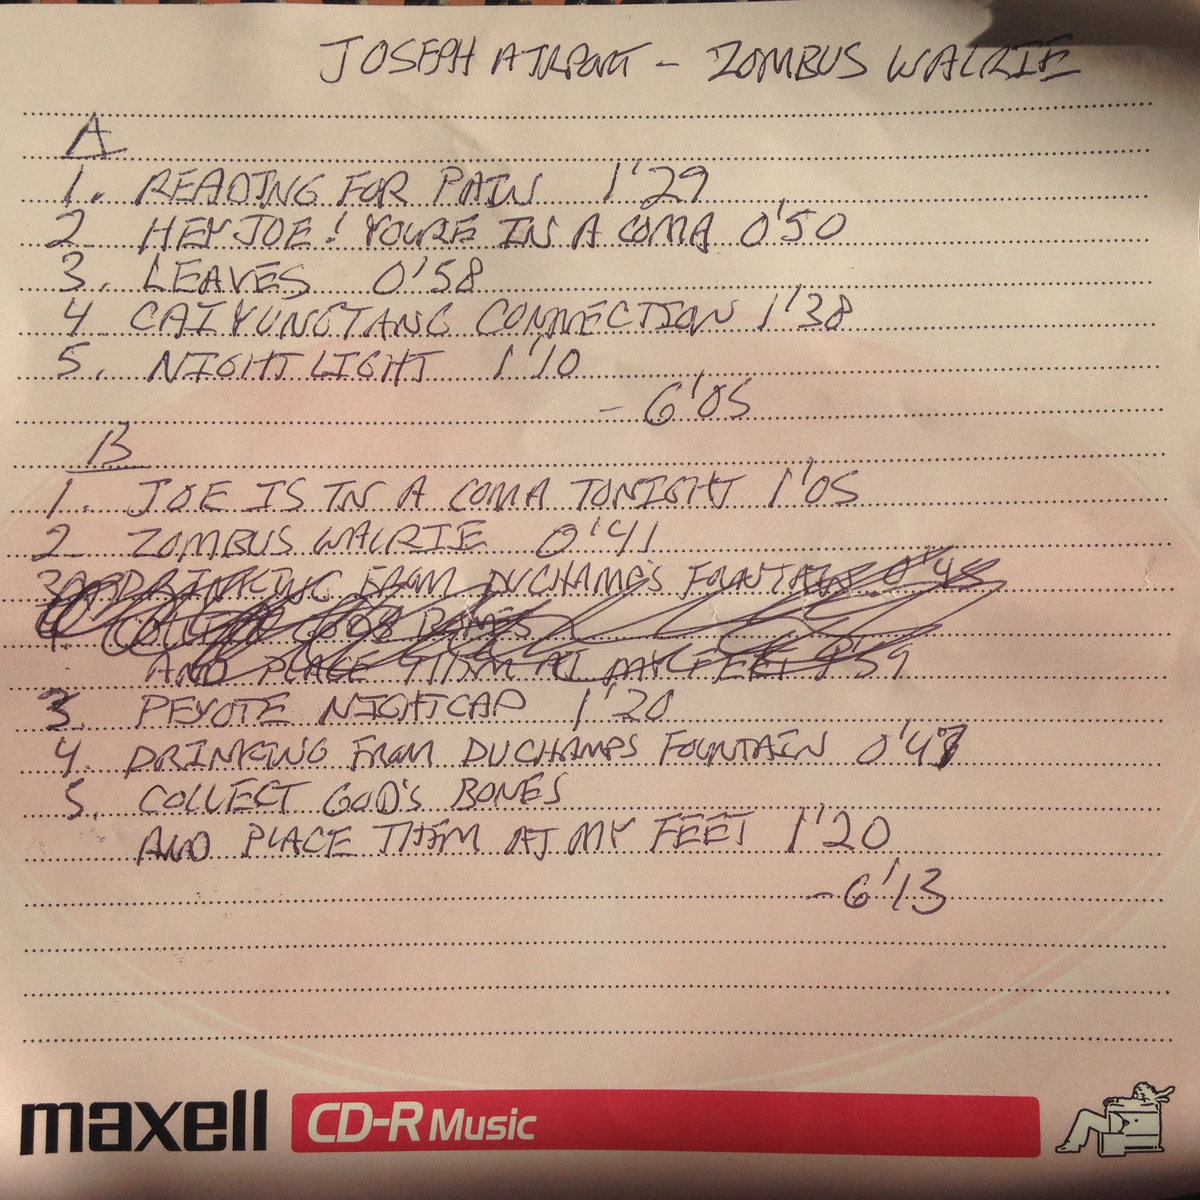 JOSEPH AIRPORT - ZOMBUS WALRIE
A
1. READING FOR PAIN 1'29
2 HEY JOE! YOU'RE IN A COMA 0'50
3. LEAVES 0'58
4 CAIYUNGTANG CONNECTION 1'38
5. NIGHT LIGHT 1'10
- 6'05
B
1. JOE IS IN A COMA TONIGHT 1'05
2 ZOMBUS WALRIE 0'41
3 DRINKING FROM DUCHAMP'S FOUNTAIN 0'48
4. COLLECT GOD'S BONES
AND PLACE THEM AT MY FEET 1'59
3. PEYOTE NIGHTCAP 1'20
4. DRINKING FROM DUCHAMPS FOUNTAIN 0'47
5. COLLECT GOD'S BONES
AND PLACE THEM AT MY FEET 1'20
- 6'13
maxell CD-R Music